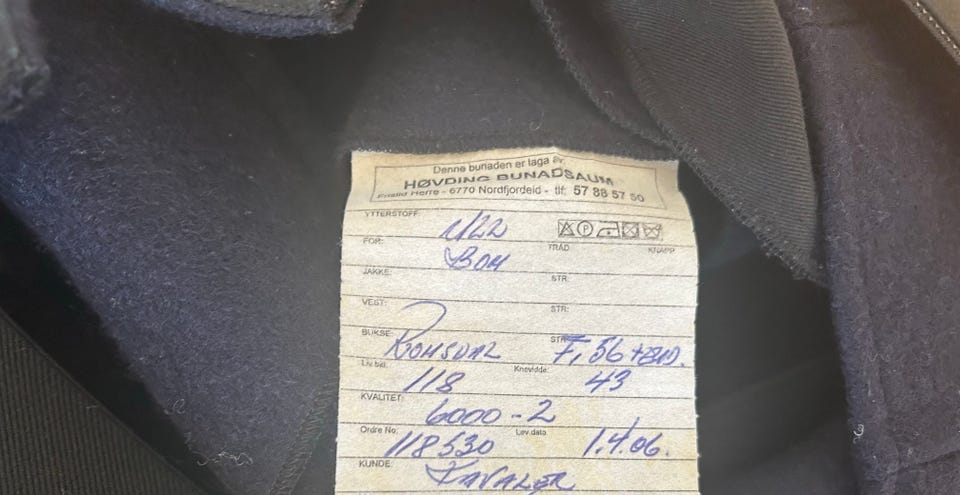 Denne bunaden er laga av:
HØVDING BUNADSAUM
Herre - 6770 Nordfjordeid - tlf: 57 88 57 50
YTTERSTOFF:
FÓR: TRÅD KNAPP
BOM
JAKKE: STR:
VEST: STR:
BUKSE: ROMSDAL STR: F, 56
Liv.bel. 118 Knevidde: 43
KVALITET: 6000-2
Ordre No. 118530 Lev.dato 1.4.06.
KUNDE: KAVALER